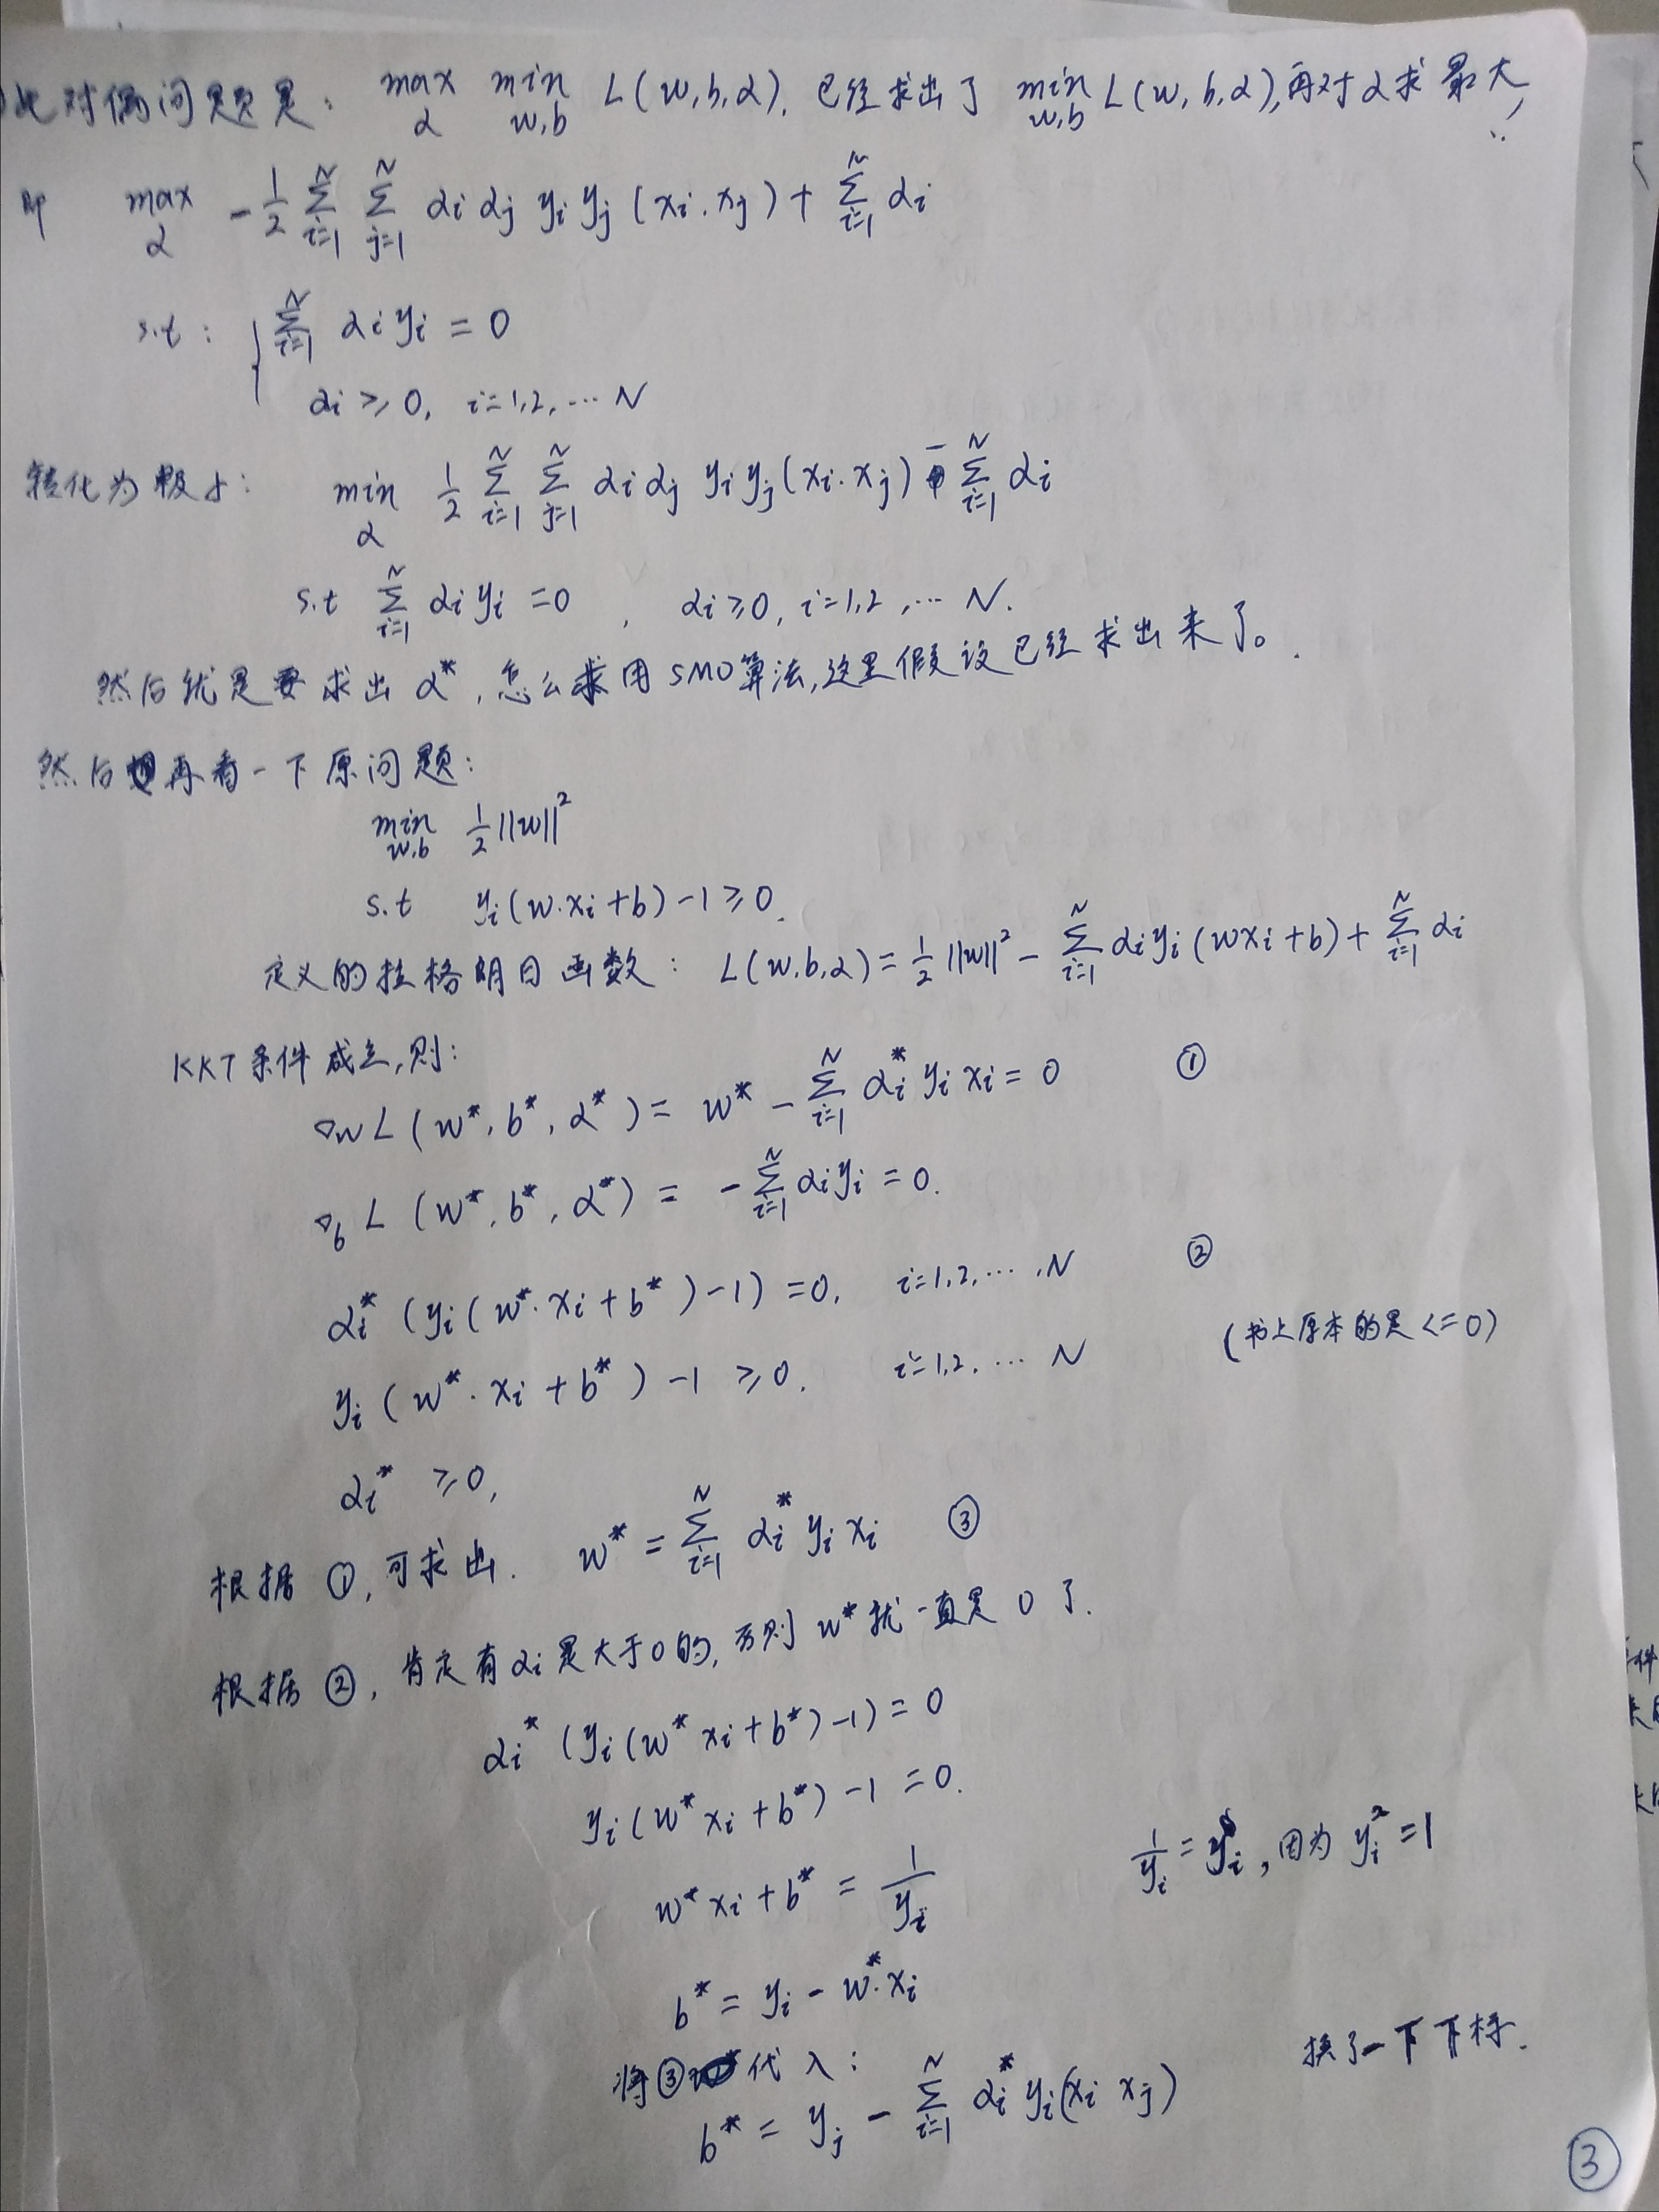 此对偶问题是: max_α min_{w,b} L(w,b,α), 已经求出了 min_{w,b} L(w,b,α), 再对α求最大
即 max_α -1/2 Σ_{i=1}^N Σ_{j=1}^N αi αj yi yj (xi·xj) + Σ_{i=1}^N αi
s.t: { Σ_{i=1}^N αi yi = 0
αi ≥ 0, i=1,2,…N
转化为极小: min_α 1/2 Σ_{i=1}^N Σ_{j=1}^N αi αj yi yj (xi·xj) - Σ_{i=1}^N αi
s.t Σ_{i=1}^N αi yi = 0, αi ≥ 0, i=1,2,…N.
然后就是要求出 α*, 怎么求用SMO算法, 这里假设已经求出来了。
然后再看一下原问题:
min_{w,b} 1/2 ||w||²
s.t yi(w·xi+b)-1 ≥ 0.
定义的拉格朗日函数: L(w,b,α) = 1/2 ||w||² - Σ_{i=1}^N αi yi (wxi+b) + Σ_{i=1}^N αi
KKT条件成立, 则:
∇w L(w*, b*, α*) = w* - Σ_{i=1}^N αi* yi xi = 0 ①
∇b L(w*, b*, α*) = - Σ_{i=1}^N αi yi = 0.
αi* (yi(w*·xi+b*)-1) = 0, i=1,2,…,N ②
yi(w*·xi+b*)-1 ≥ 0. i=1,2,…N (书上原本的是 <=0)
αi* ≥ 0,
根据①, 可求出. w* = Σ_{i=1}^N αi* yi xi ③
根据②, 肯定有αi是大于0的, 否则w*就一直是0了.
αi* (yi(w* xi+b*)-1) = 0
yi(w* xi+b*)-1 = 0.
w* xi+b* = 1/yi 1/yi = yi, 因为 yi² = 1
b* = yi - w*·xi
将③代入: 换了一下下标.
b* = yj - Σ_{i=1}^N αi* yi(xi xj)
③